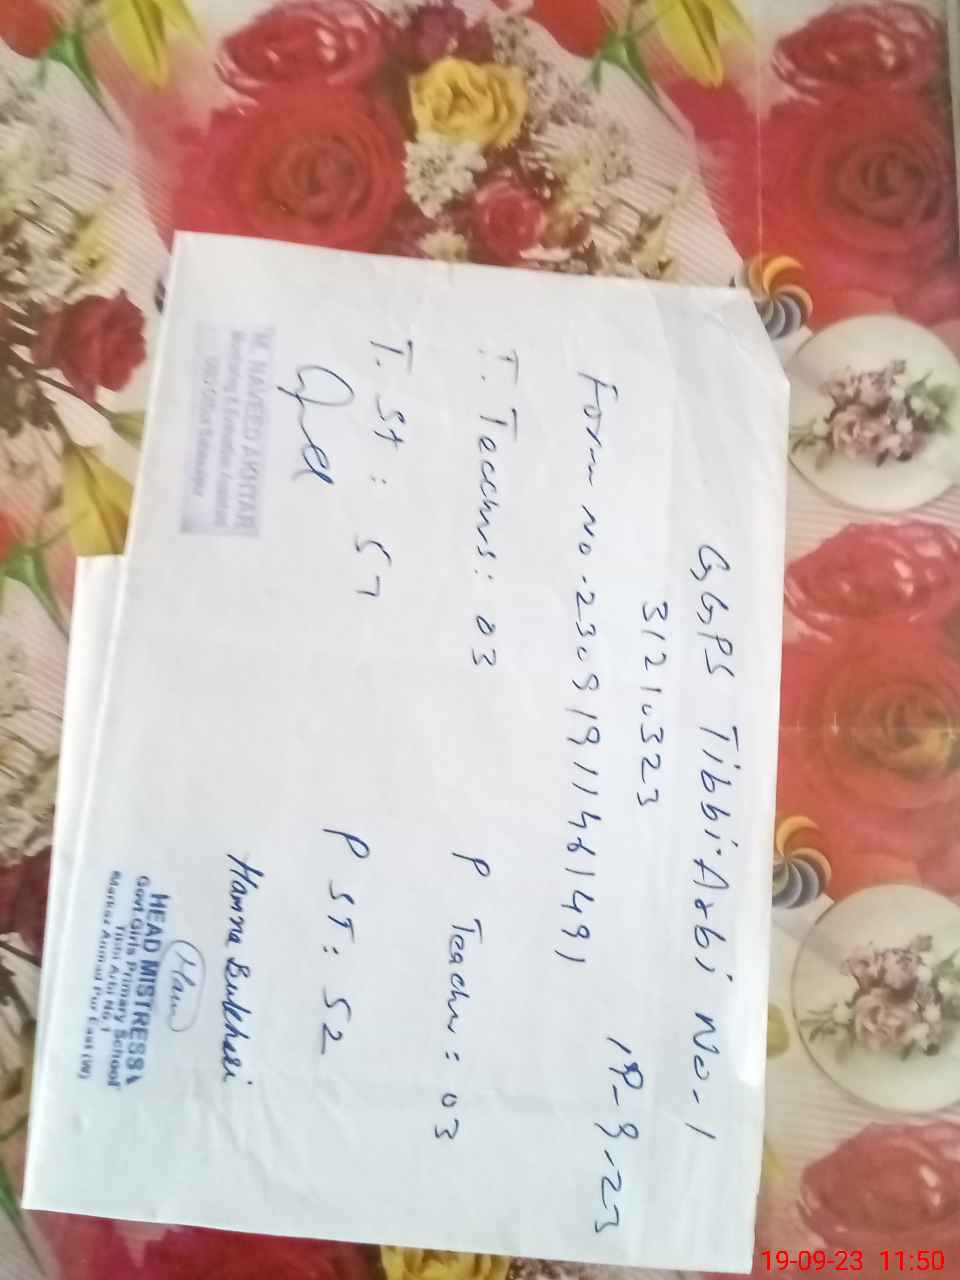 GGPS Tibbi Arbi No-1
31210323
19-9-23
Form no.
T. Teachrs: 03
P Teachr: 03
T. St: 57
P ST: 52
Hamna Bukhari
M. NAVEED AKHTAR
Monitoring & Evaluation Assistant
HEAD MISTRESS
Govt.Girls Primary School
Tibbi Arbi No.1
Markaz Ahmad Pur East (W)
19-09-23 11:50